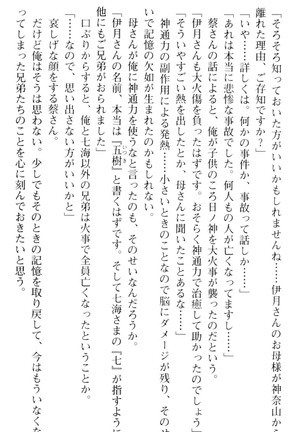 「そろそろ知っておいた方がいいかもしれませんね……伊月さんのお母様が神奈山から
離れた理由、ご存知ですか？」
「いや……詳しくは。何かの事件か、事故って話しか……」
「あれは本当に悲惨な事故でした。何人もの人が亡くなってますし……」
蔡さんの話によると、俺が子供のころ日ノ神を大火事が襲ったのだという。
「伊月さんも大火傷を負ったはずです。おそらく神通力で治癒して助かったのでしょう」
「そういやすごい熱を出したとか、母さんに聞いたことあるな……」
神通力の副作用による発熱……小さいときのことなので脳にダメージが残り、そのせ
いで記憶の欠如が生まれたのかもしれない。
母さんが俺に神通力を使うなと言ったのも、そのせいなんだろうか。
「伊月さんの名前、本当は『五樹』と書くはずです。そして七海さまの『七』が指すように
他にもご兄弟がおられました」
口ぶりからすると、俺と七海以外の兄弟は火事で全員亡くなったということか。
「……なので、思い出さない方がいいかと」
哀しげな顔をする蔡さん。
だけど俺はそうは思わない。少しでもそのときの記憶を取り戻して、今はもういなくな
ってしまった兄弟たちのことを心に刻んでおきたいと思う。